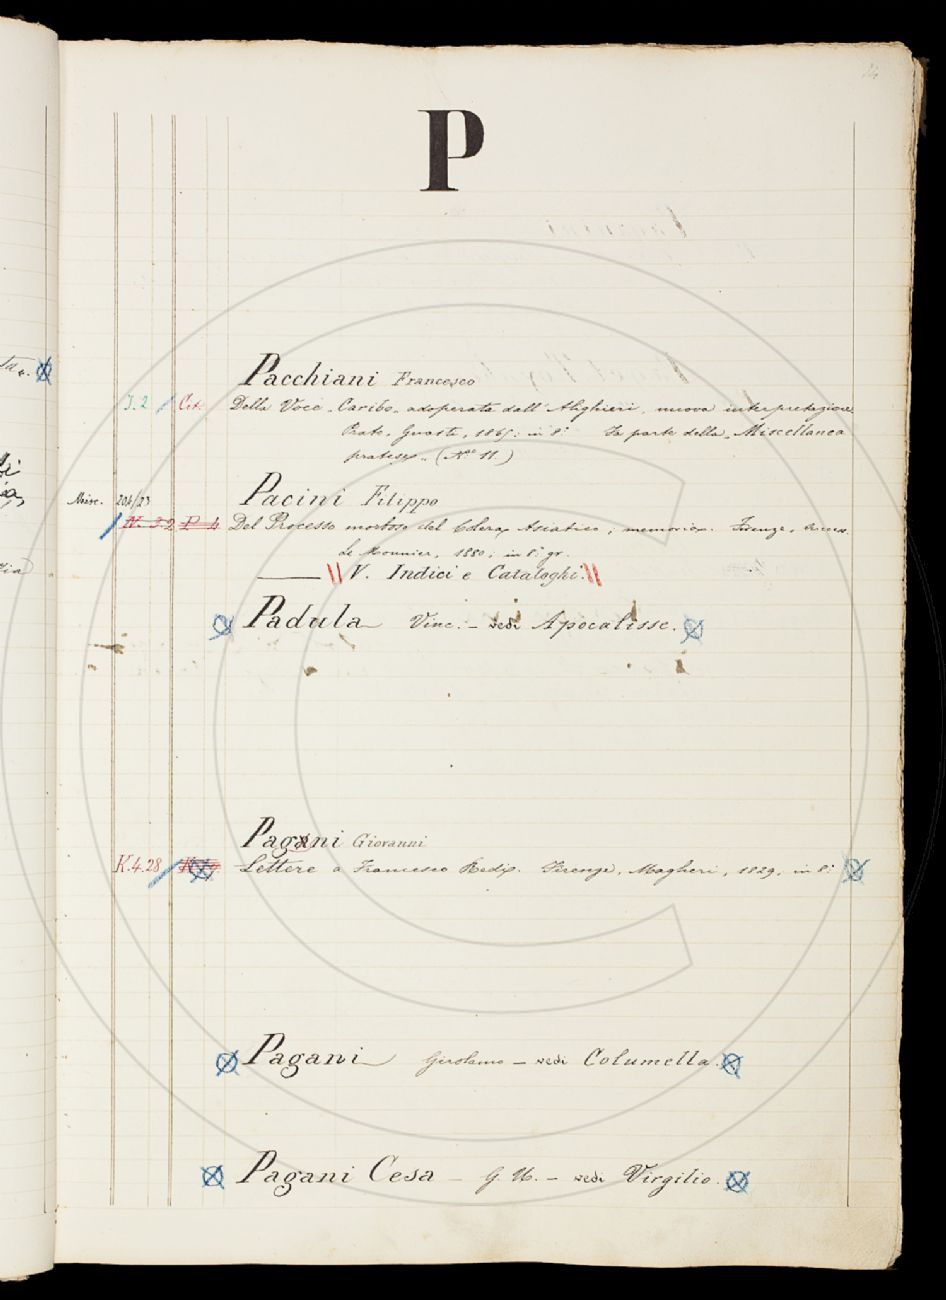 P
Pacchiani Francesco
J.2 Cr. Della Voce "Caribo" adoperata dall'Alighieri, nuova interpretazione
Prato, Guasti, 18 in 8.° Fa parte della "Miscellanea
pratese" (N.° 11)
Pacini Filippo
Misc. 204/23
N. 3.2 P. 4 Del Processo morboso del Colera Asiatico; memoria. Firenze, succ.
Le Monnier, 1880; in 8.° gr.
V. Indici e Cataloghi.
Padula Vinc. – vedi Apocalisse.
Pagani Giovanni
K.4.28 Lettere a Francesco Redi. Firenze, Magheri, 1829, in 8.°
Pagani Girolamo – vedi Columella.
Pagani Cesa – G. U. – vedi Virgilio.